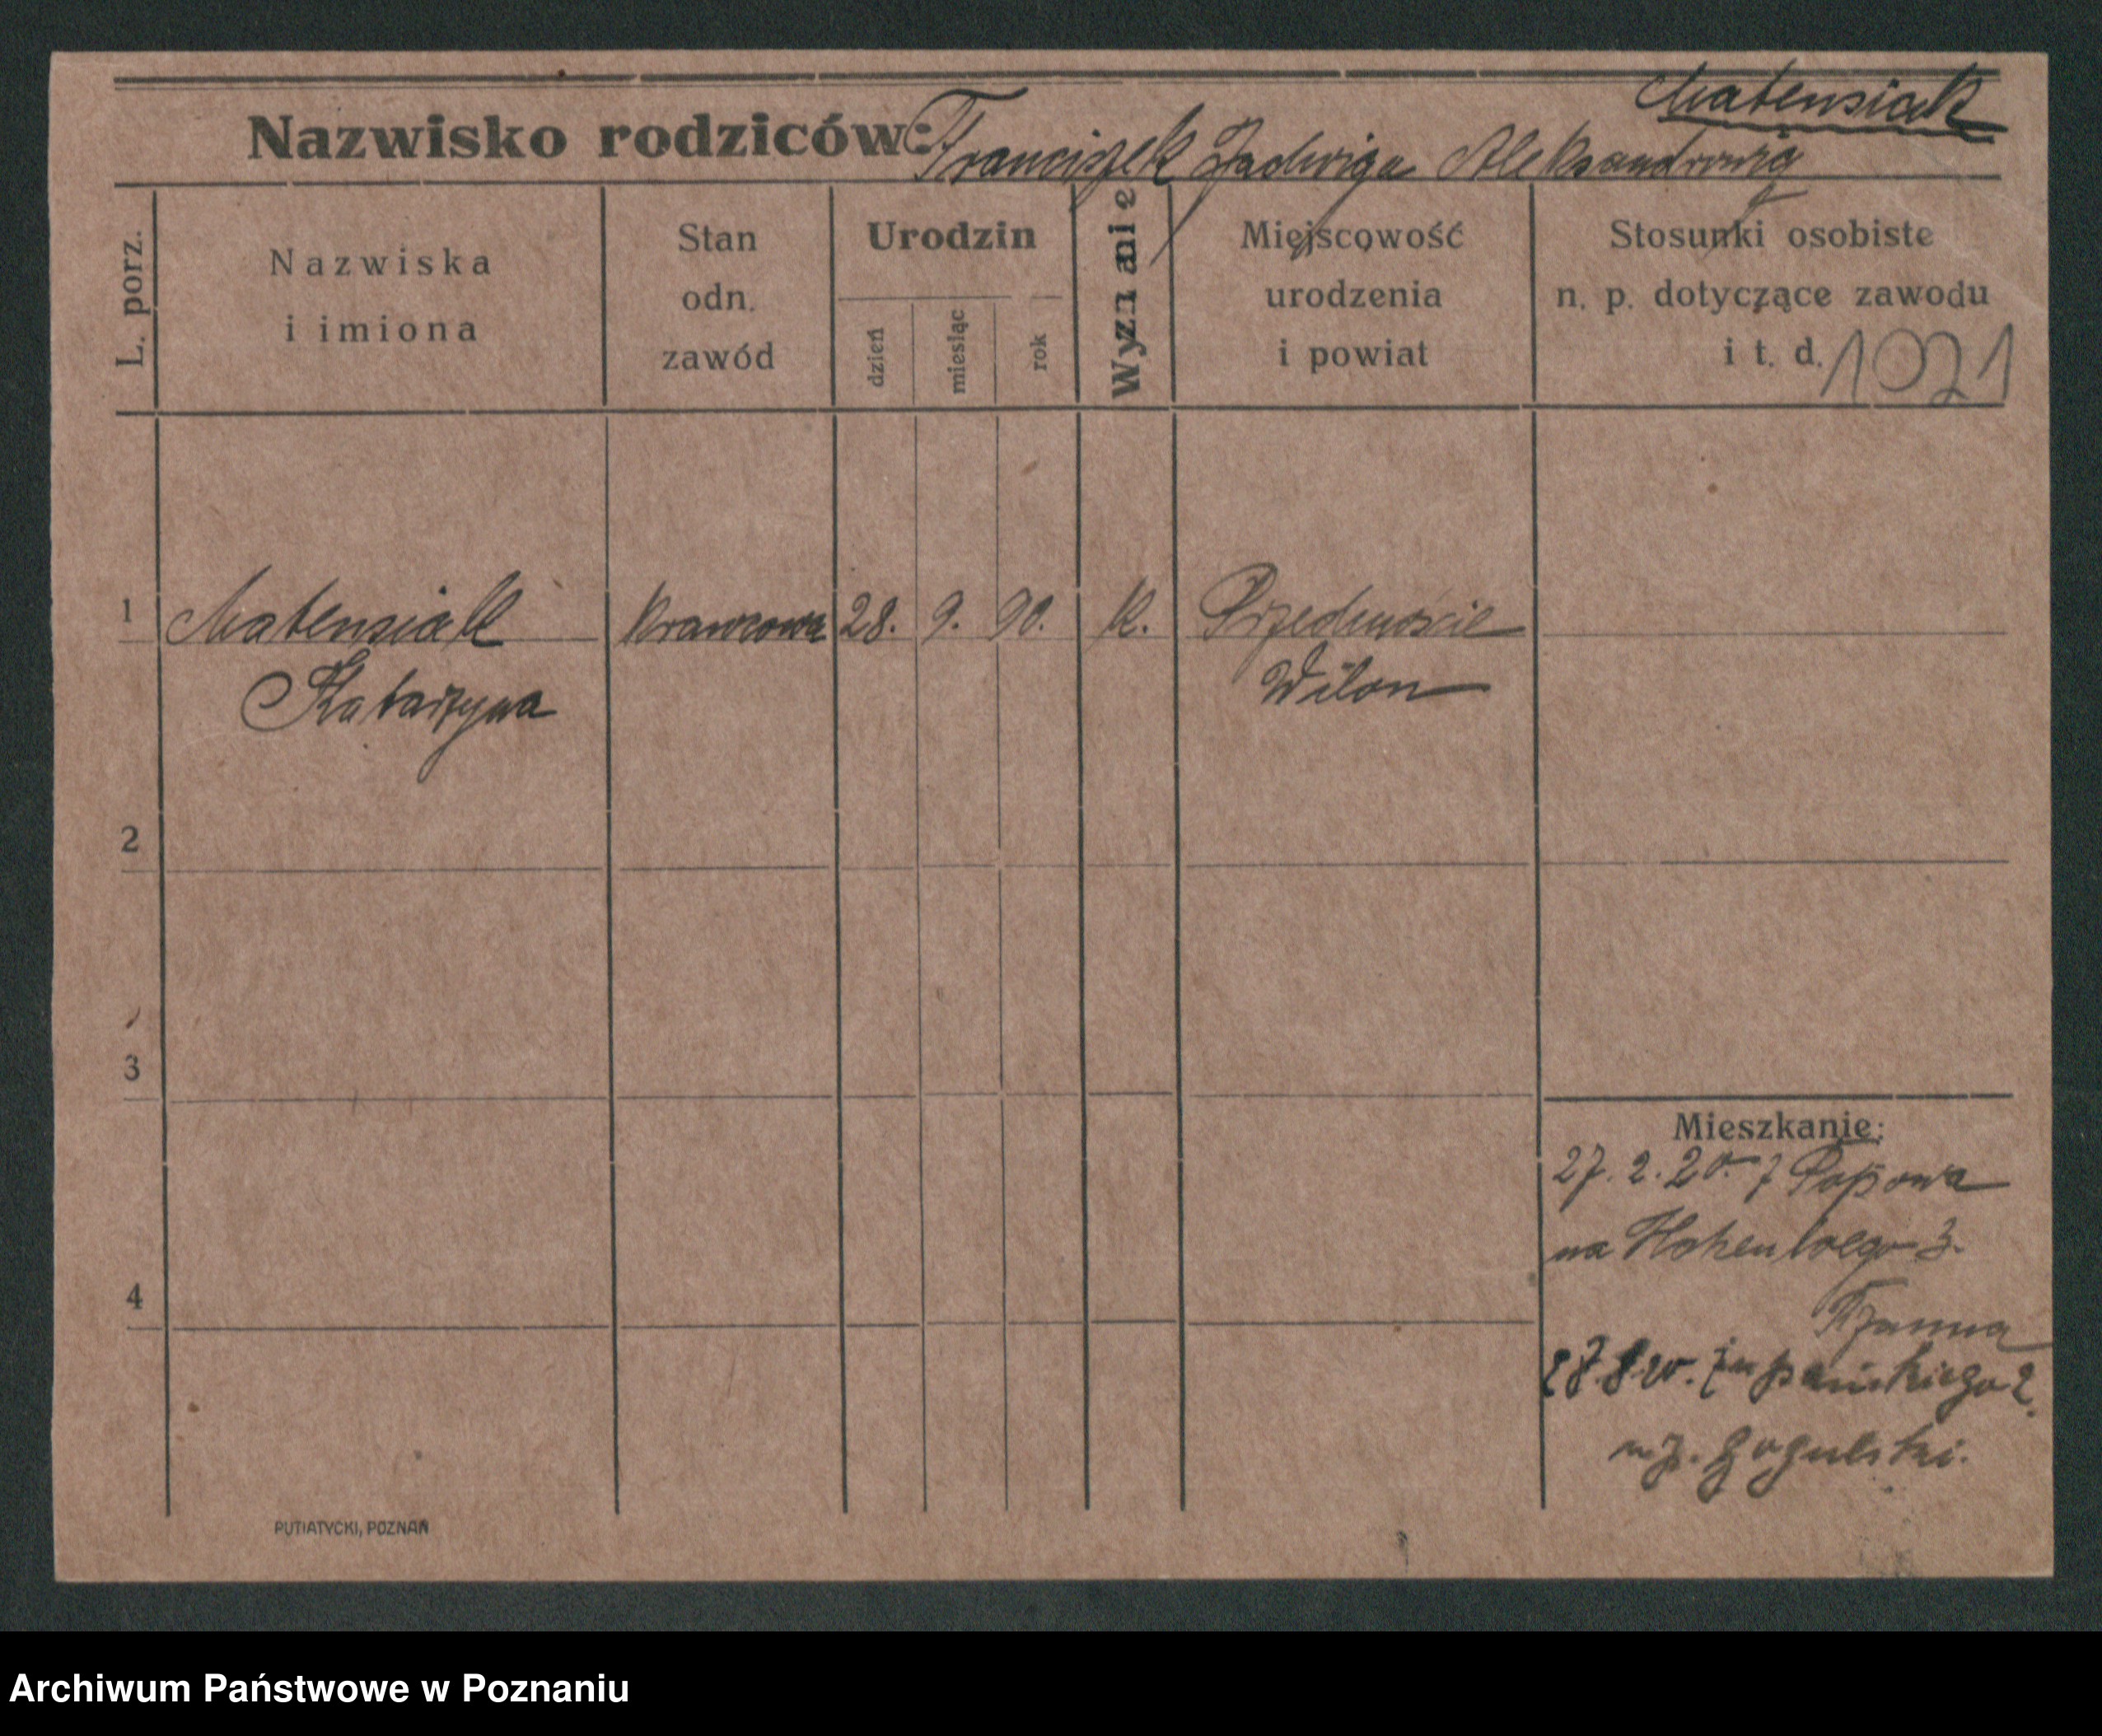 Matensiak
Nazwisko rodziców: Franciszek Jadwiga Aleksandrowicz
L. porz.
Nazwiska
i imiona
Stan
odn.
zawód
Urodzin
dzień
miesiąc
rok
Wyznanie
Miejscowość
urodzenia
i powiat
Stosunki osobiste
n. p. dotyczące zawodu
i t. d. 1021
1 Matensiak Krawcowa 28. 9. 90. K. Przedmoście
Katarzyna Wilon
2
3
4
Mieszkanie:
27. 2. 20. z Popowa
na 3.
27.8.20. 2
Gogulski.
PUTIATYCKI, POZNAŃ
Archiwum Państwowe w Poznaniu